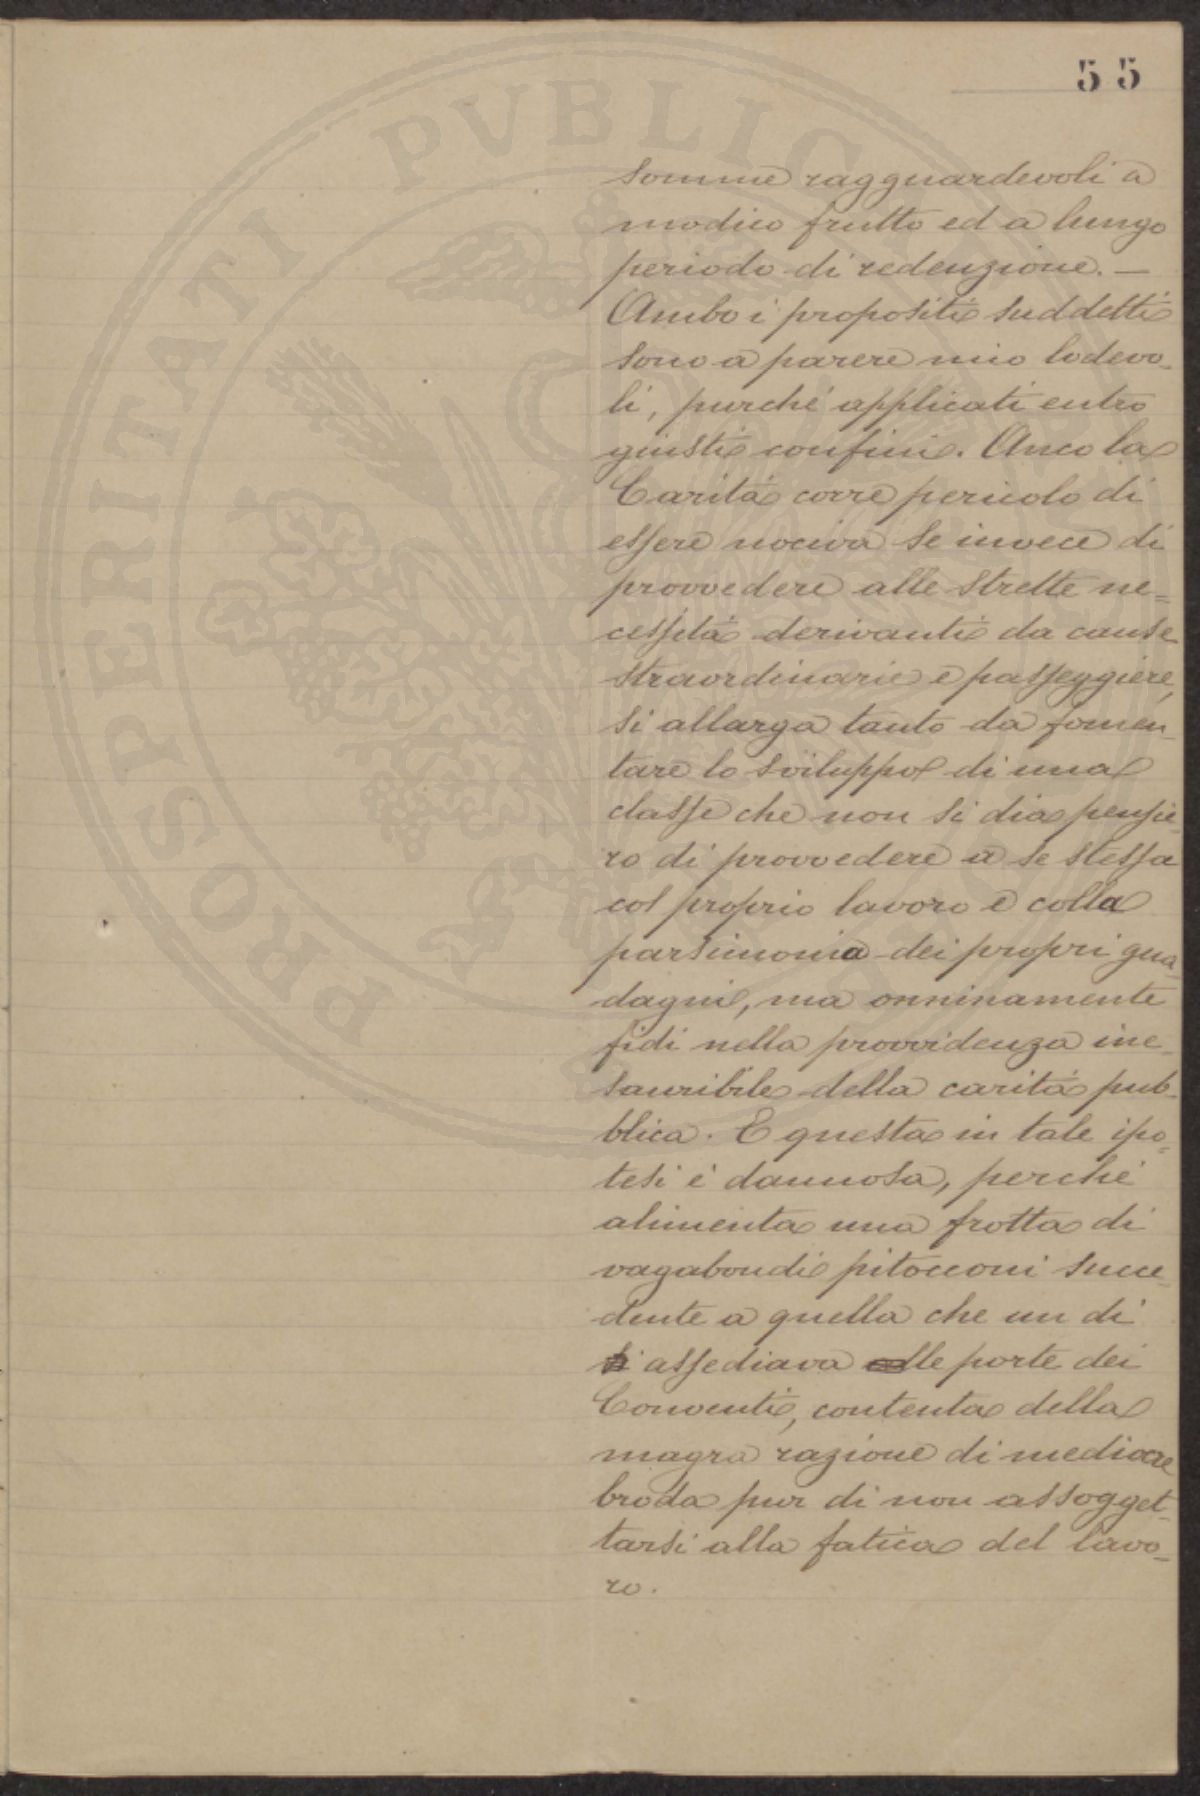 55
somme ragguardevoli a
modico frutto ed a lungo
periodo di redenzione. —
Ambo i propositi suddetti
sono a parere mio lodevo-
li, purché applicati entro
giusti confini. Anco la
Carità corre pericolo di
essere nociva se invece di
provvedere alle strette ne=
cessità derivanti da cause
straordinarie e passeggiere,
si allarga tanto da fomen-
tare lo sviluppo di una
classe che non si dia pensie-
ro di provvedere a se stessa
col proprio lavoro e colla
parsimonia dei propri gua-
dagni, ma onninamente
fidi nella provvidenza ine-
sauribile della carità pub-
blica. E questa in tale ipo-
tesi è dannosa, perché
alimenta una frotta di
vagabondi pitocconi succe-
dente a quella che un dì
assediava le porte dei
Conventi, contenta della
magra razione di mediocre
broda pur di non assogget-
tarsi alla fatica del lavo-
ro.
PROSPERITATI PVBLIC